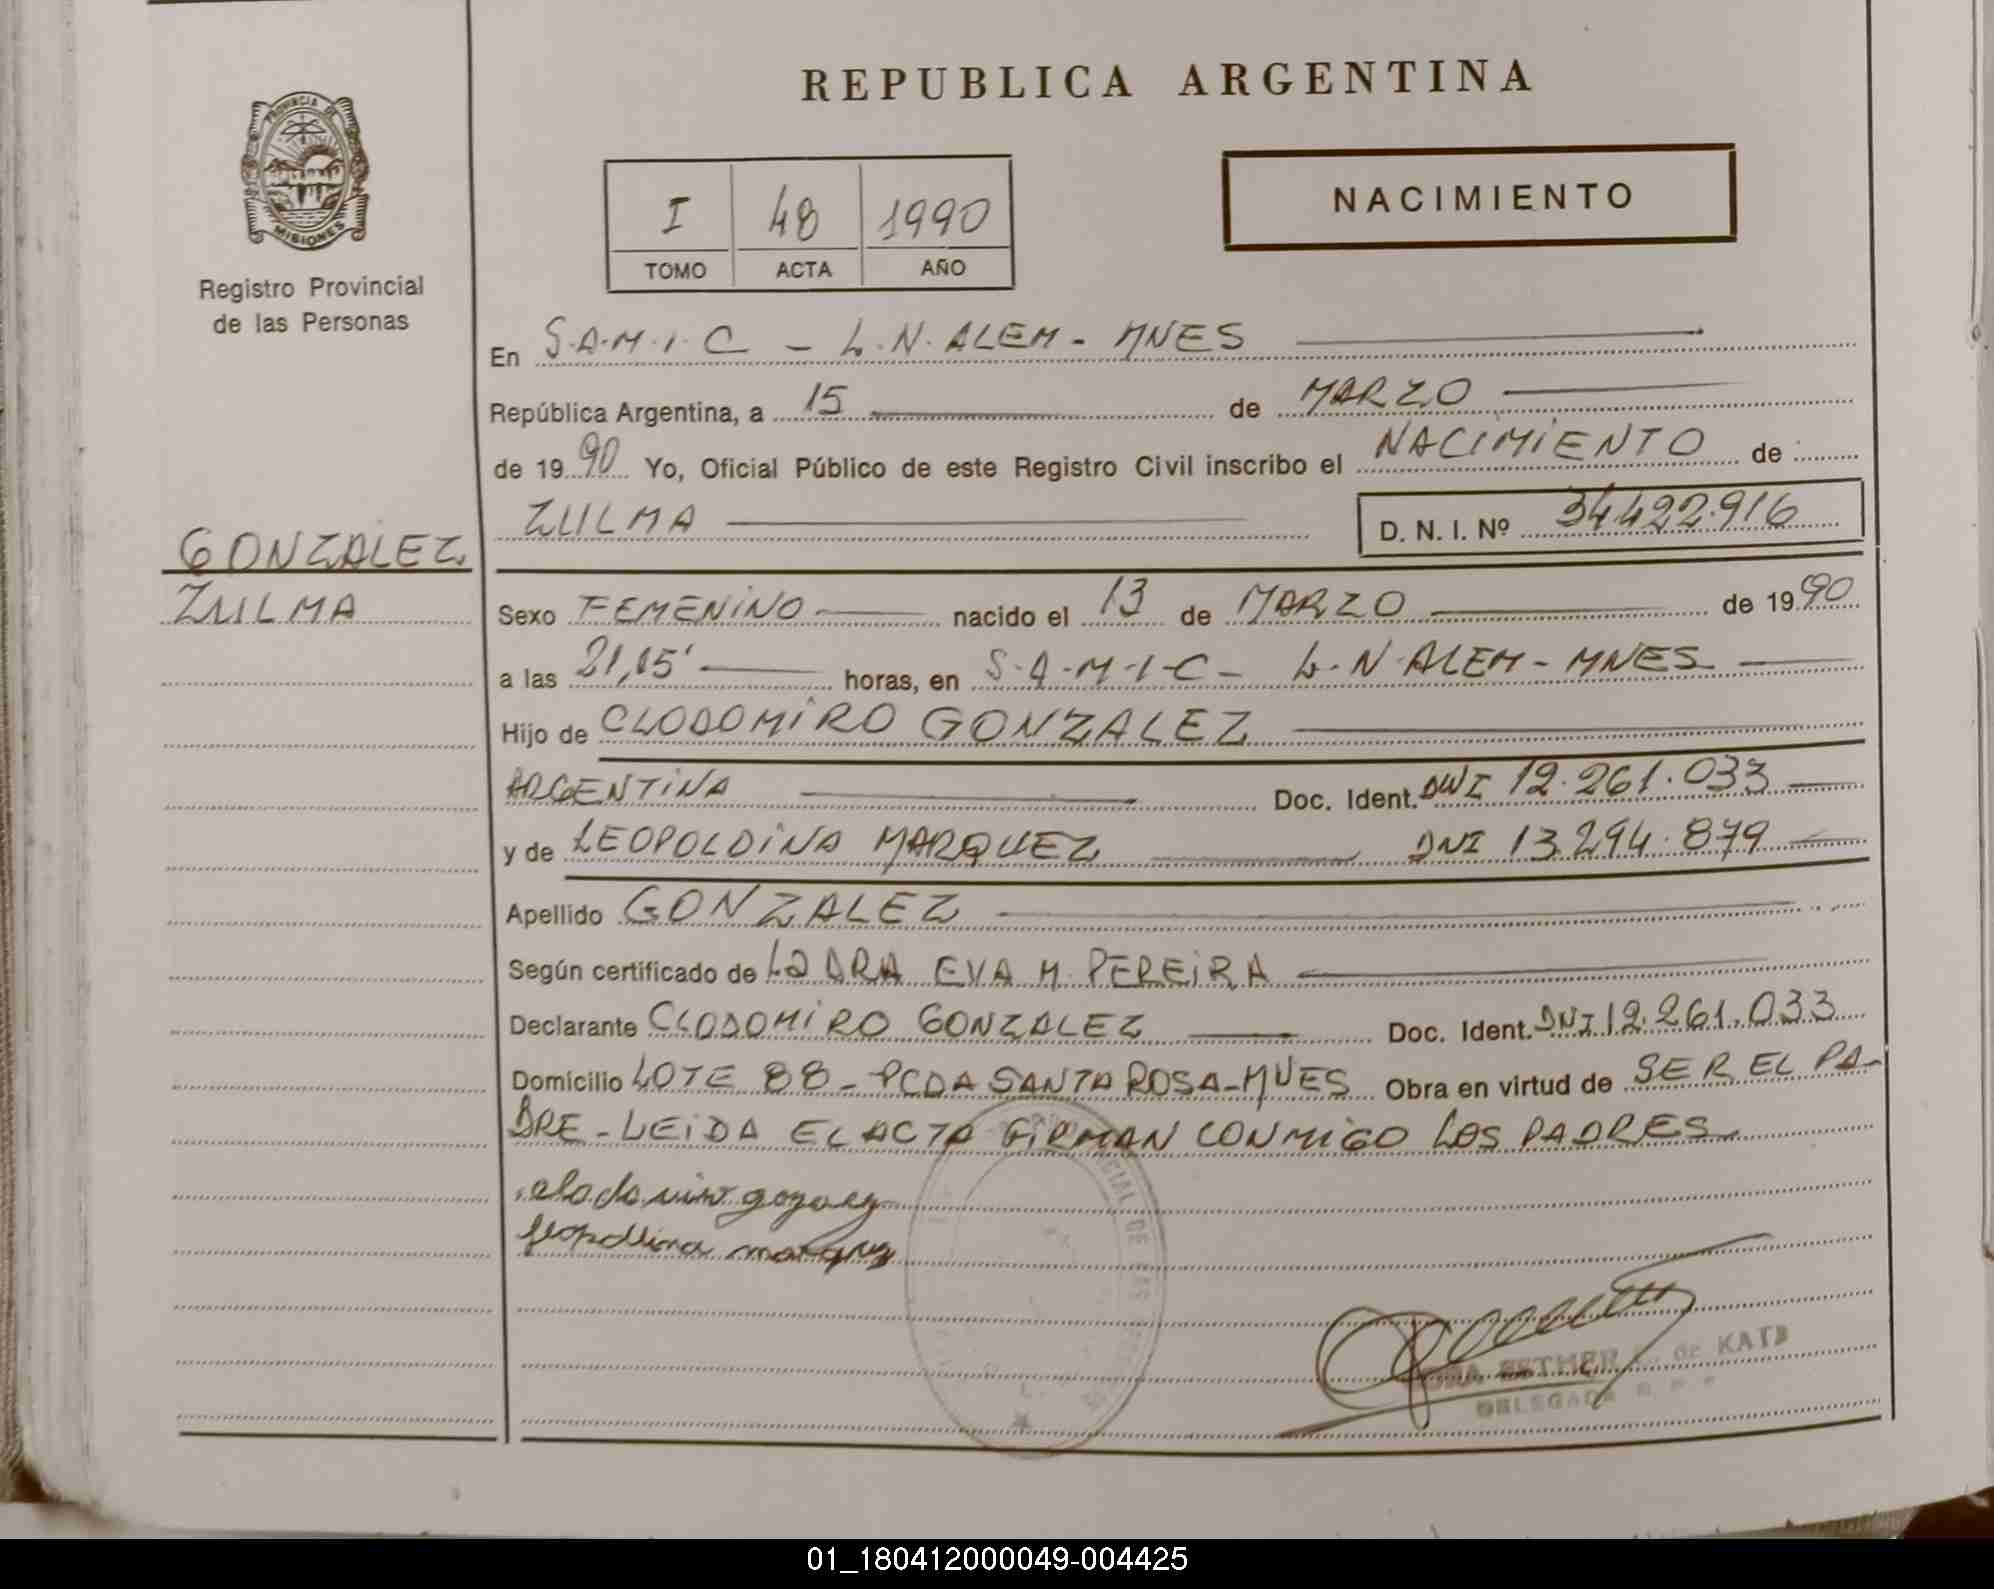 REPUBLICA ARGENTINA
PROVINCIA DE
MISIONES
Registro Provincial
de las Personas
NACIMIENTO
I 48 1990
TOMO ACTA AÑO
En S.A.M.I.C - L.N. ALEM - MNES
República Argentina, a 15 de MARZO
de 1990 Yo, Oficial Público de este Registro Civil inscribo el NACIMIENTO de
ZULMA D. N. I. Nº 34.422.916
GONZALEZ
ZULMA
Sexo FEMENINO nacido el 13 de MARZO de 1990
a las 21,15' horas, en S-A-M-I-C - L-N-ALEM - MNES
Hijo de CLODOMIRO GONZALEZ
ARGENTINA Doc. Ident. DNI 12.261.033
y de LEOPOLDINA MARQUEZ DNI 13.294.879
Apellido GONZALEZ
Según certificado de LA DRA EVA M. PEREIRA
Declarante CLODOMIRO GONZALEZ Doc. Ident. DNI 12.261.033
Domicilio LOTE 88 - PCDA SANTA ROSA - MNES Obra en virtud de SER EL PA-
DRE - LEIDA EL ACTA FIRMAN CONMIGO LOS PADRES
DRA. ESTHER de KATZ
DELEGADA
01_180412000049-004425